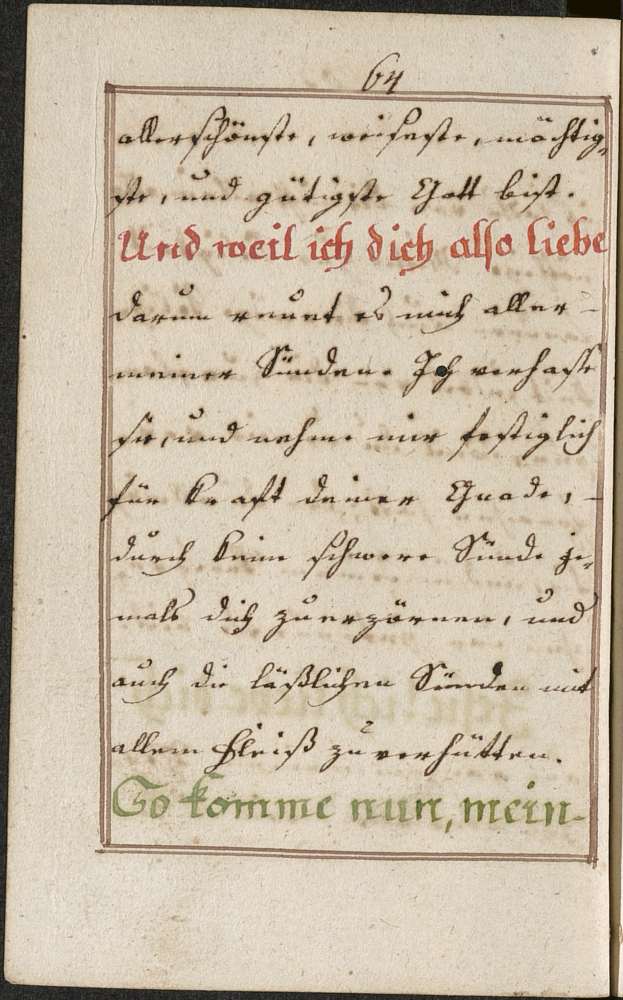 64
allerschönste, weiseste, mächtig=
ste, und gütigste Gott bist.
Und weil ich dich also liebe
darum reuet es mich aller -
meiner Sünden. Ich verhasse
sie, und nehme mir festiglich
für kraft deiner Gnade, -
durch keine schwere Sünde je=
mals dich zuerzörnen, und
auch die läßlichen Sünden mit
allem Fleiß zuverhütten.
So komme nun, mein-